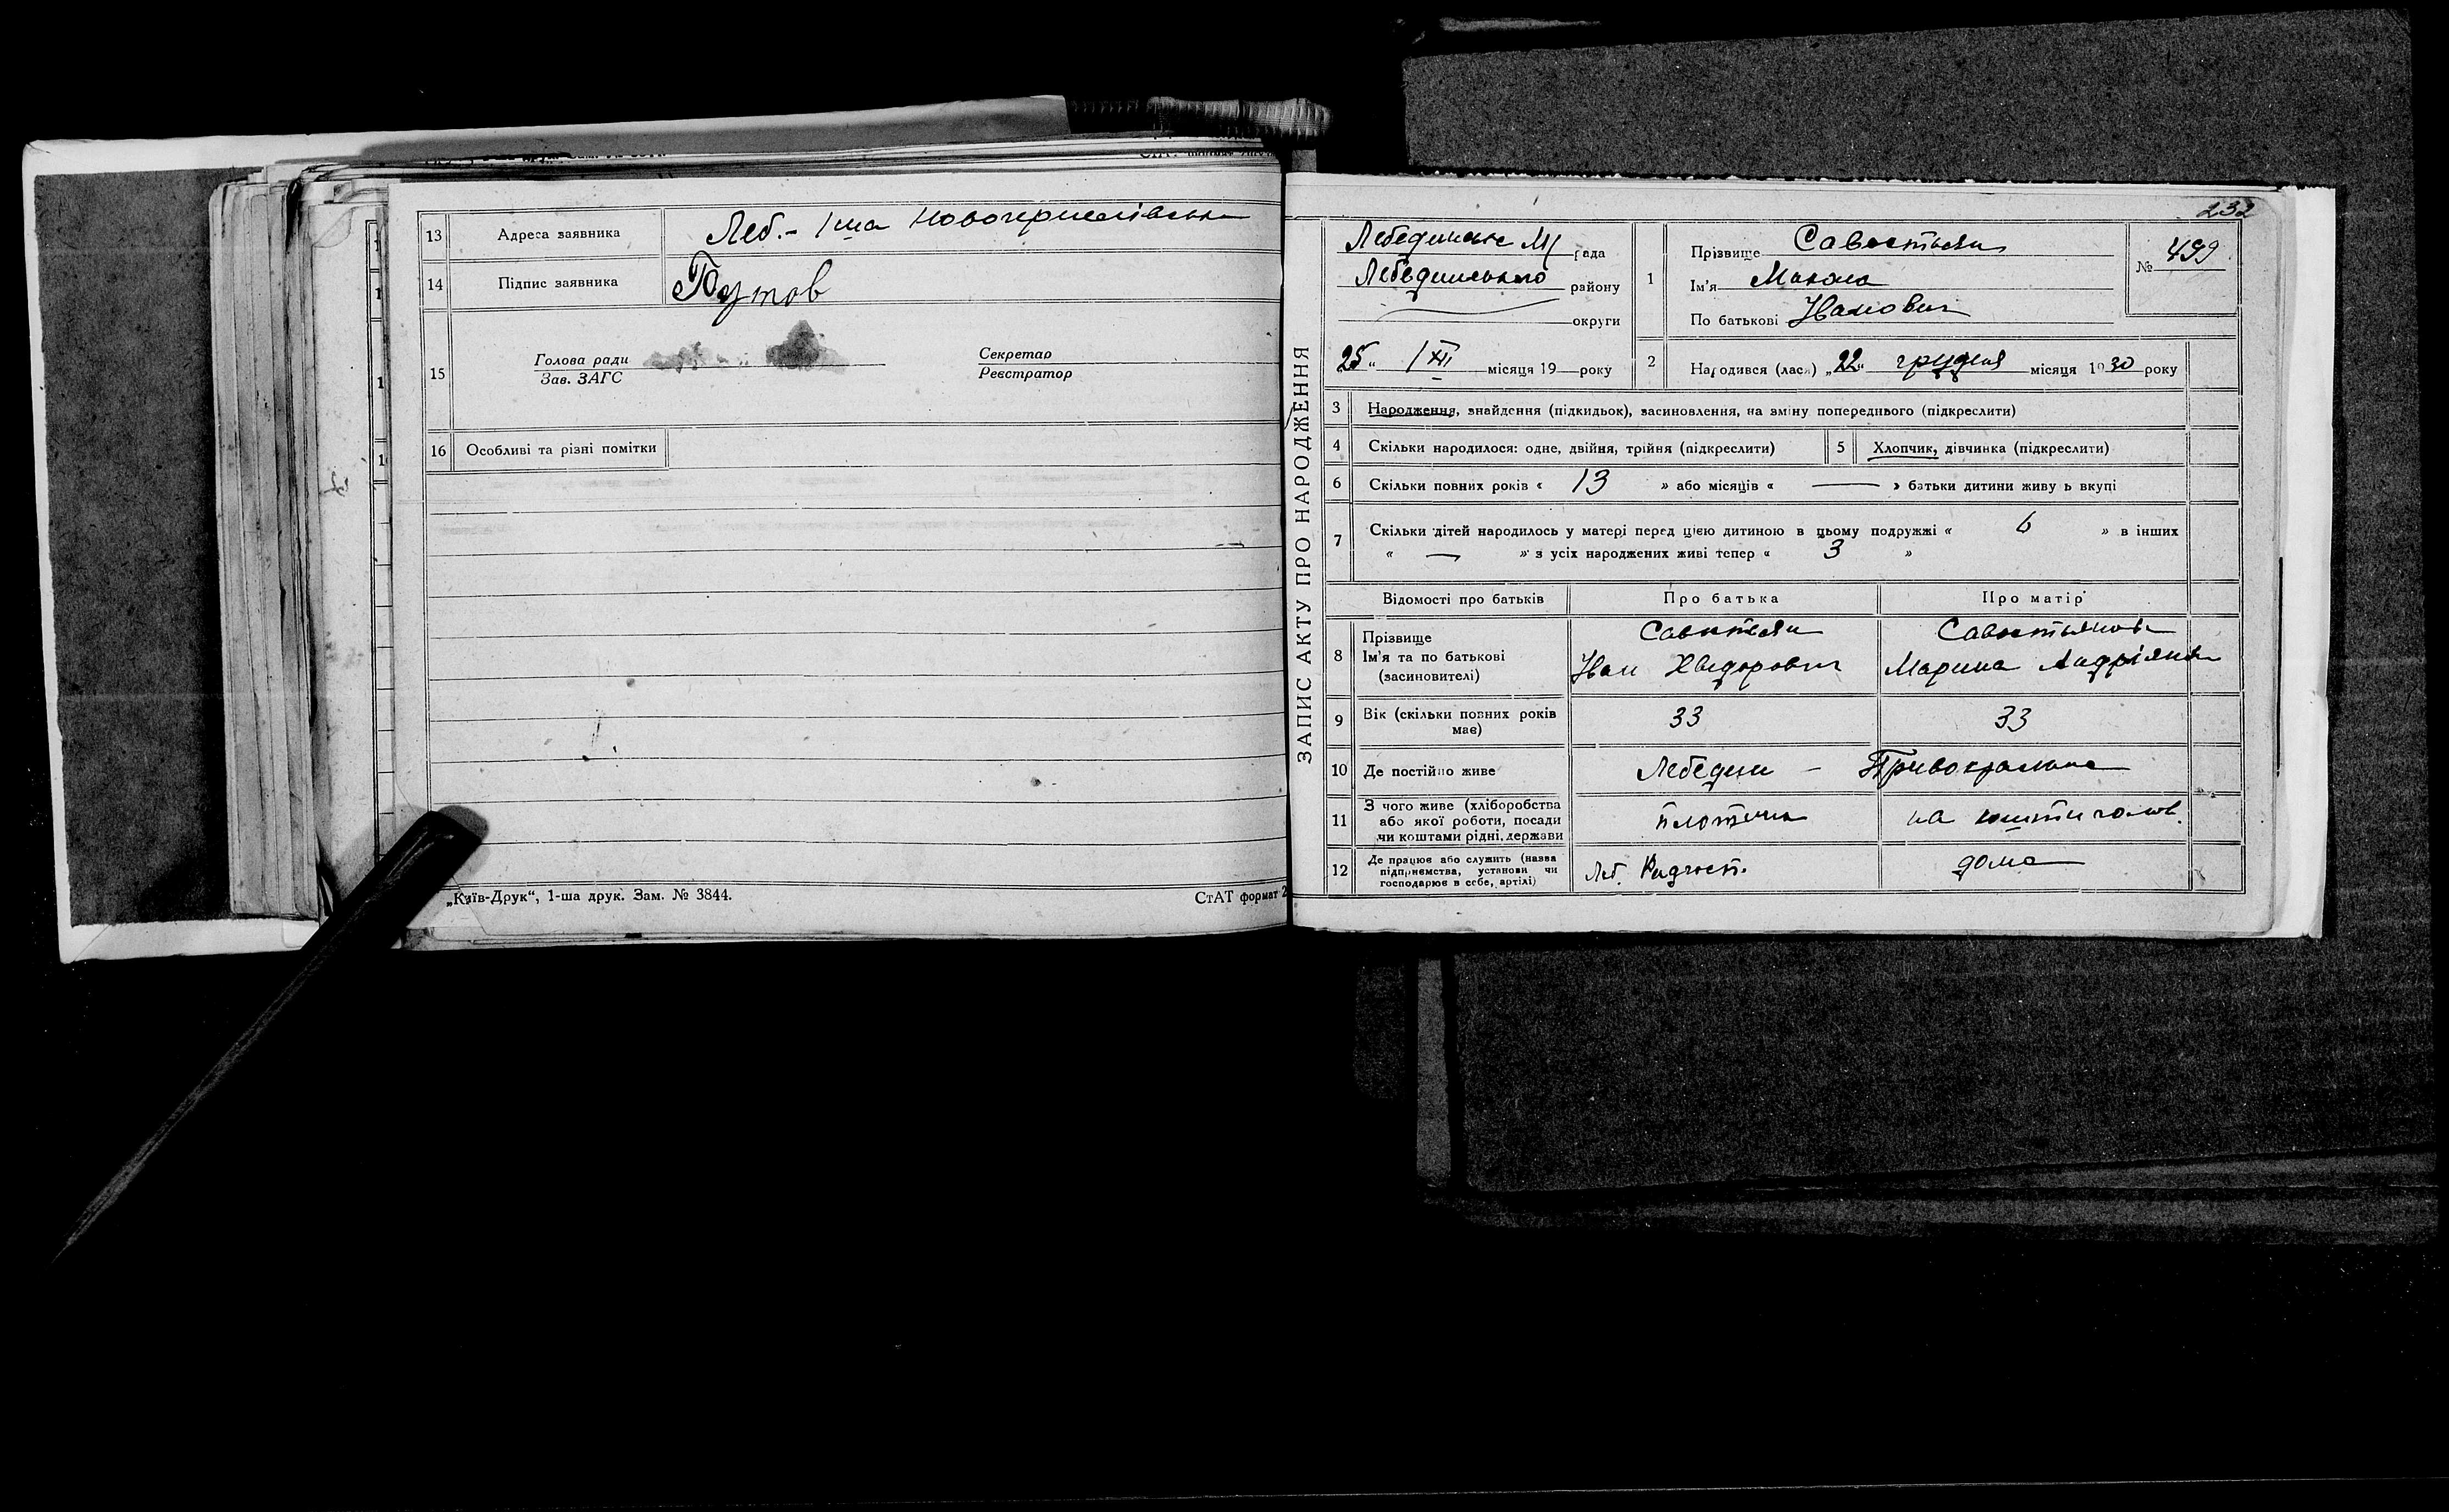 13 Адреса заявника Леб.- 1ша
14 Підпис заявника Бутов
15 Голова ради Секретар
Зав. ЗАГС Реєстратор
16 Особливі та різні помітки
„Київ-Друк“, 1-ша друк. Зам. № 3844.
СтАТ формат 2
232
ЗАПИС АКТУ ПРО НАРОДЖЕННЯ
Лебединська М рада
Лебединського району
округи
25 “ XII місяця 19 року
1 Прізвище Савостьян
Ім'я Микола
По батькові Іванович
№ 499
2 Народився (лася) „22“ грудня місяця 1930 року
3 Народження, знайдення (підкидьок), засиновлення, на зміну попереднього (підкреслити)
4 Скільки народилося: одне, двійня, трійня (підкреслити) 5 Хлопчик, дівчинка (підкреслити)
6 Скільки повних років « 13 » або місяців « — » батьки дитини живуть вкупі
7 Скільки дітей народилось у матері перед цією дитиною в цьому подружжі « 6 » в інших
« — » з усіх народжених живі тепер « 3 »
Відомості про батьків Про батька Про матір
8 Прізвище Савостьян Савостьянова
Ім'я та по батькові Іван Хведорович Марина
(засиновителі)
9 Вік (скільки повних років 33 33
має)
10 Де постійно живе Лебедин –
11 З чого живе (хліборобства
або якої роботи, посади на кошти чолов.
чи коштами рідні, держави
12 Де працює або служить (назва
підприємства, установи чи Леб. дома
господарює в себе, артілі)